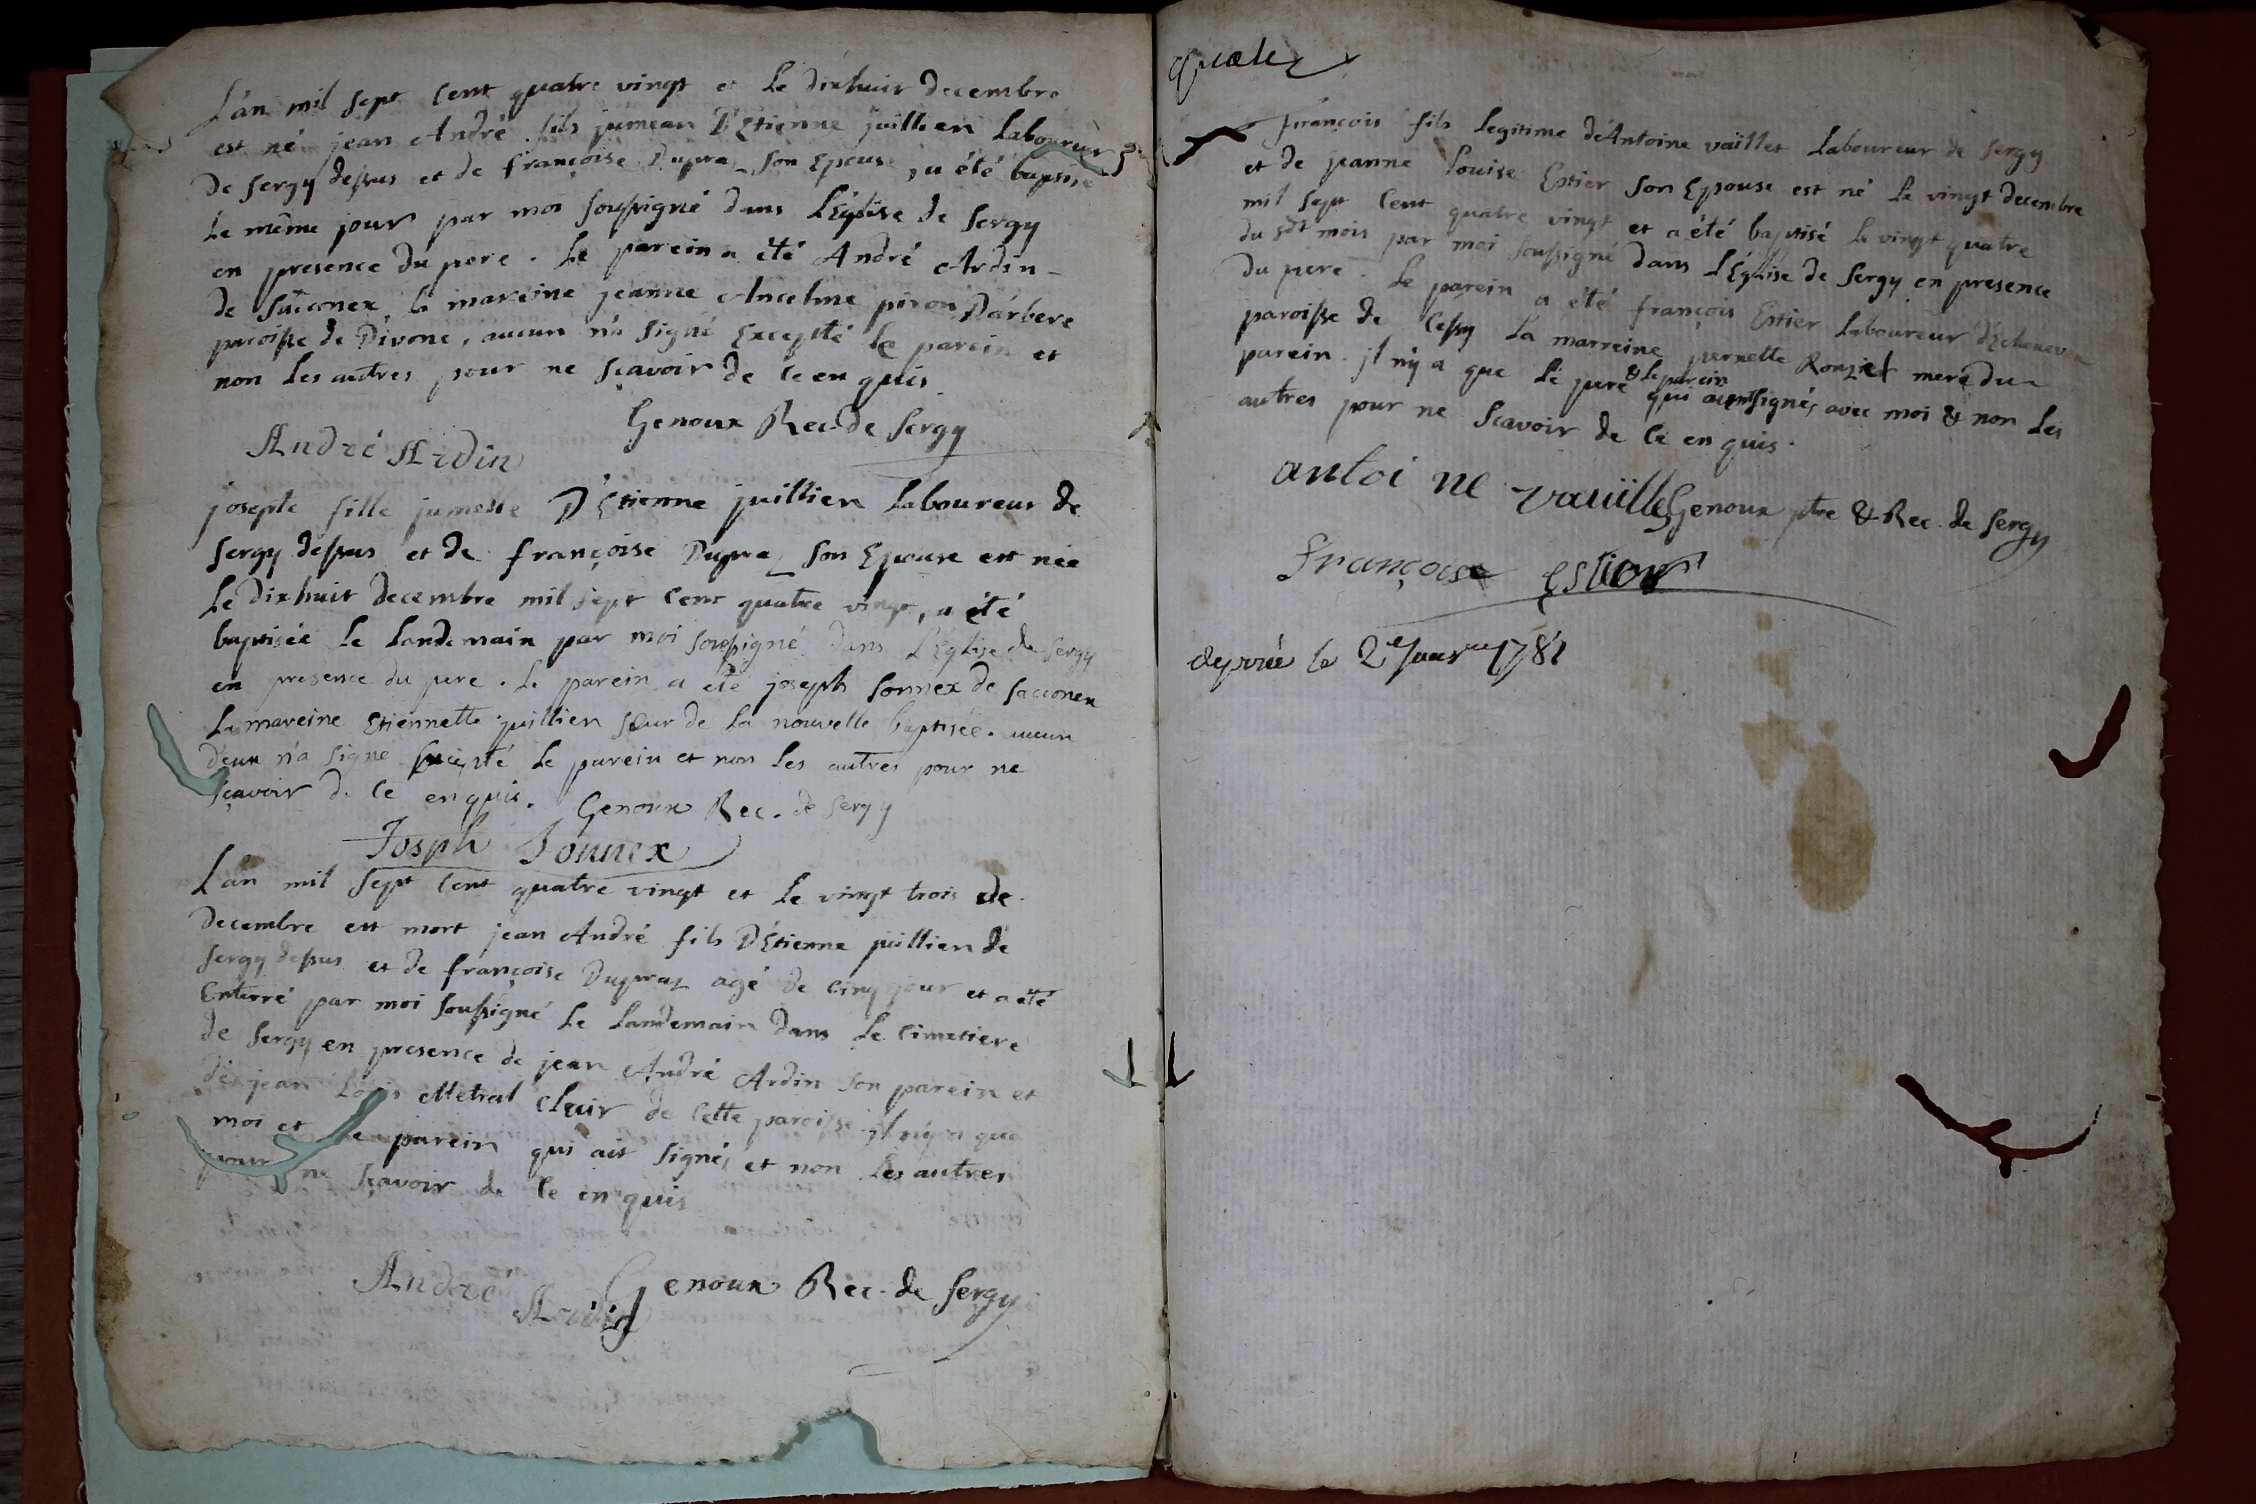 L'an mil sept cent quatre vingt et le dixhuit decembre
est né jean André fils jumeau D'Etienne juillien Laboureur
De sergy dessus et de françoise Dupraz son Epouse, a été baptisé
le même jour par moi soussigné dans L'Eglise de sergy
en presence du pere. Le parein a été André Ardin
de Sacconex, la mareine jeanne Anselme piron D'arbere
paroisse de Divone, aucun n'a signé Excepté le parein et
non les autres pour ne sçavoir de ce enquis
Genoux Rec. de sergy
André Ardin
josepte fille jumelle D'Etienne juillien Laboureur de
sergy dessus et de françoise Dupraz son Epouse est née
Le dixhuit decembre mil sept cent quatre vingt, a été
baptisée le landemain par moi soussigné dans L'Eglise de sergy
en presence du pere. Le parein a été joseph sonnex de sacconex
La mareine Etiennette juillien sœur de la nouvelle baptisée. aucun
d'eux n'a signé Excepté le parein et non les autres pour ne
sçavoir de ce enquis. Genoux Rec. de sergy
Josph Sonnex
L'an mil sept cent quatre vingt et le vingt trois de
decembre est mort jean André fils D'Etienne juillien de
sergy dessus et de françoise Dupraz agé de cinq jour et a été
Enterré par moi soussigné le landemain dans le cimetiere
de sergy en presence de jean André Ardin son parein et
de jean Louis Metral Clair de cette paroisse il n'y a que
moi et le parein qui ait signés et non les autres
pour ne sçavoir de ce enquis
André Genoux Rec. de sergy
Ardin
françois fils legitime d'Antoine vaillet laboureur de sergy
et de jeanne Louise Estier son Epouse est né le vingt decembre
mil sept cent quatre vingt et a été baptisé le vingt quatre
du sdt mois par moi soussigné dans L'Eglise de sergy en presence
du pere. Le parein a été françois Estier laboureur d'Echenevex
paroisse de Cessy La marreine pernette Rouziel mere du
parein. il n'y a que le pere & le parein qui ayent signés avec moi & non les
autres pour ne sçavoir de ce enquis.
antoi ne vauille Genoux ptre & Rec. de sergy
françoise estier
le 2e Janvier 1781